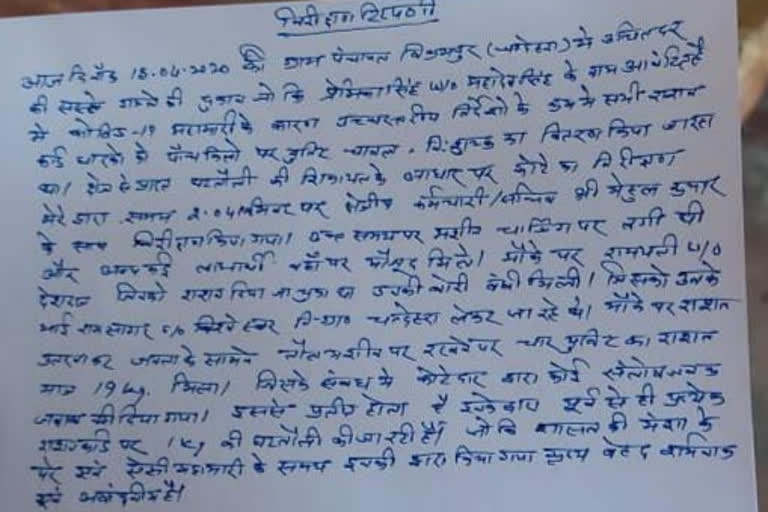 निरीक्षण टिप्पणी
आज दिनाँक 15.04.2020 को ग्राम पंचायत विजयपुर (चन्देहरा) में उचितदर
की सस्ते गल्ले की दुकान जो कि प्रेमिका सिंह w/o महादेव सिंह के नाम आवंटित है
में कोविड-19 महामारी के कारण उच्चस्तरीय निर्देशों के क्रम में सभी राशन
कार्ड धारकों को पाँच किलो पर यूनिट चावल निःशुल्क का वितरण किया जा रहा
था। घटतौली की शिकायत के आधार पर कोटे का निरीक्षण
मेरे द्वारा समय 2:04 मिनट पर क्षेत्रीय कर्मचारी/सचिव श्री मेहुल कुमार
के साथ निरीक्षण किया गया। उक्त समय पर मशीन चार्जिंग पर लगी थी
और लाभार्थी वहाँ पर मौजूद मिले। मौके पर रामपती w/o
देशराज जिनको राशन दिया जा चुका था उनकी बोरी बंधी मिली। जिसको उनके
भाई रामसागर s/o नि-ग्राम चन्देहरा लेकर जा रहे थे। मौके पर राशन
उतरवाकर जनता के सामने तौल मशीन पर रखने पर चार यूनिट का राशन
मात्र 19 kg. मिला। जिसके संबंध में कोटेदार द्वारा कोई संतोषजनक
जवाब नहीं दिया गया। इससे प्रतीत होता है इनके द्वारा पूर्व से ही प्रत्येक
राशनकार्ड पर 1 kg की घटतौली की जा रही है। जो कि शासन की मंशा के
एवं ऐसी महामारी के समय इनके द्वारा किया गया कृत्य बेहद शर्मनाक
एवं है।